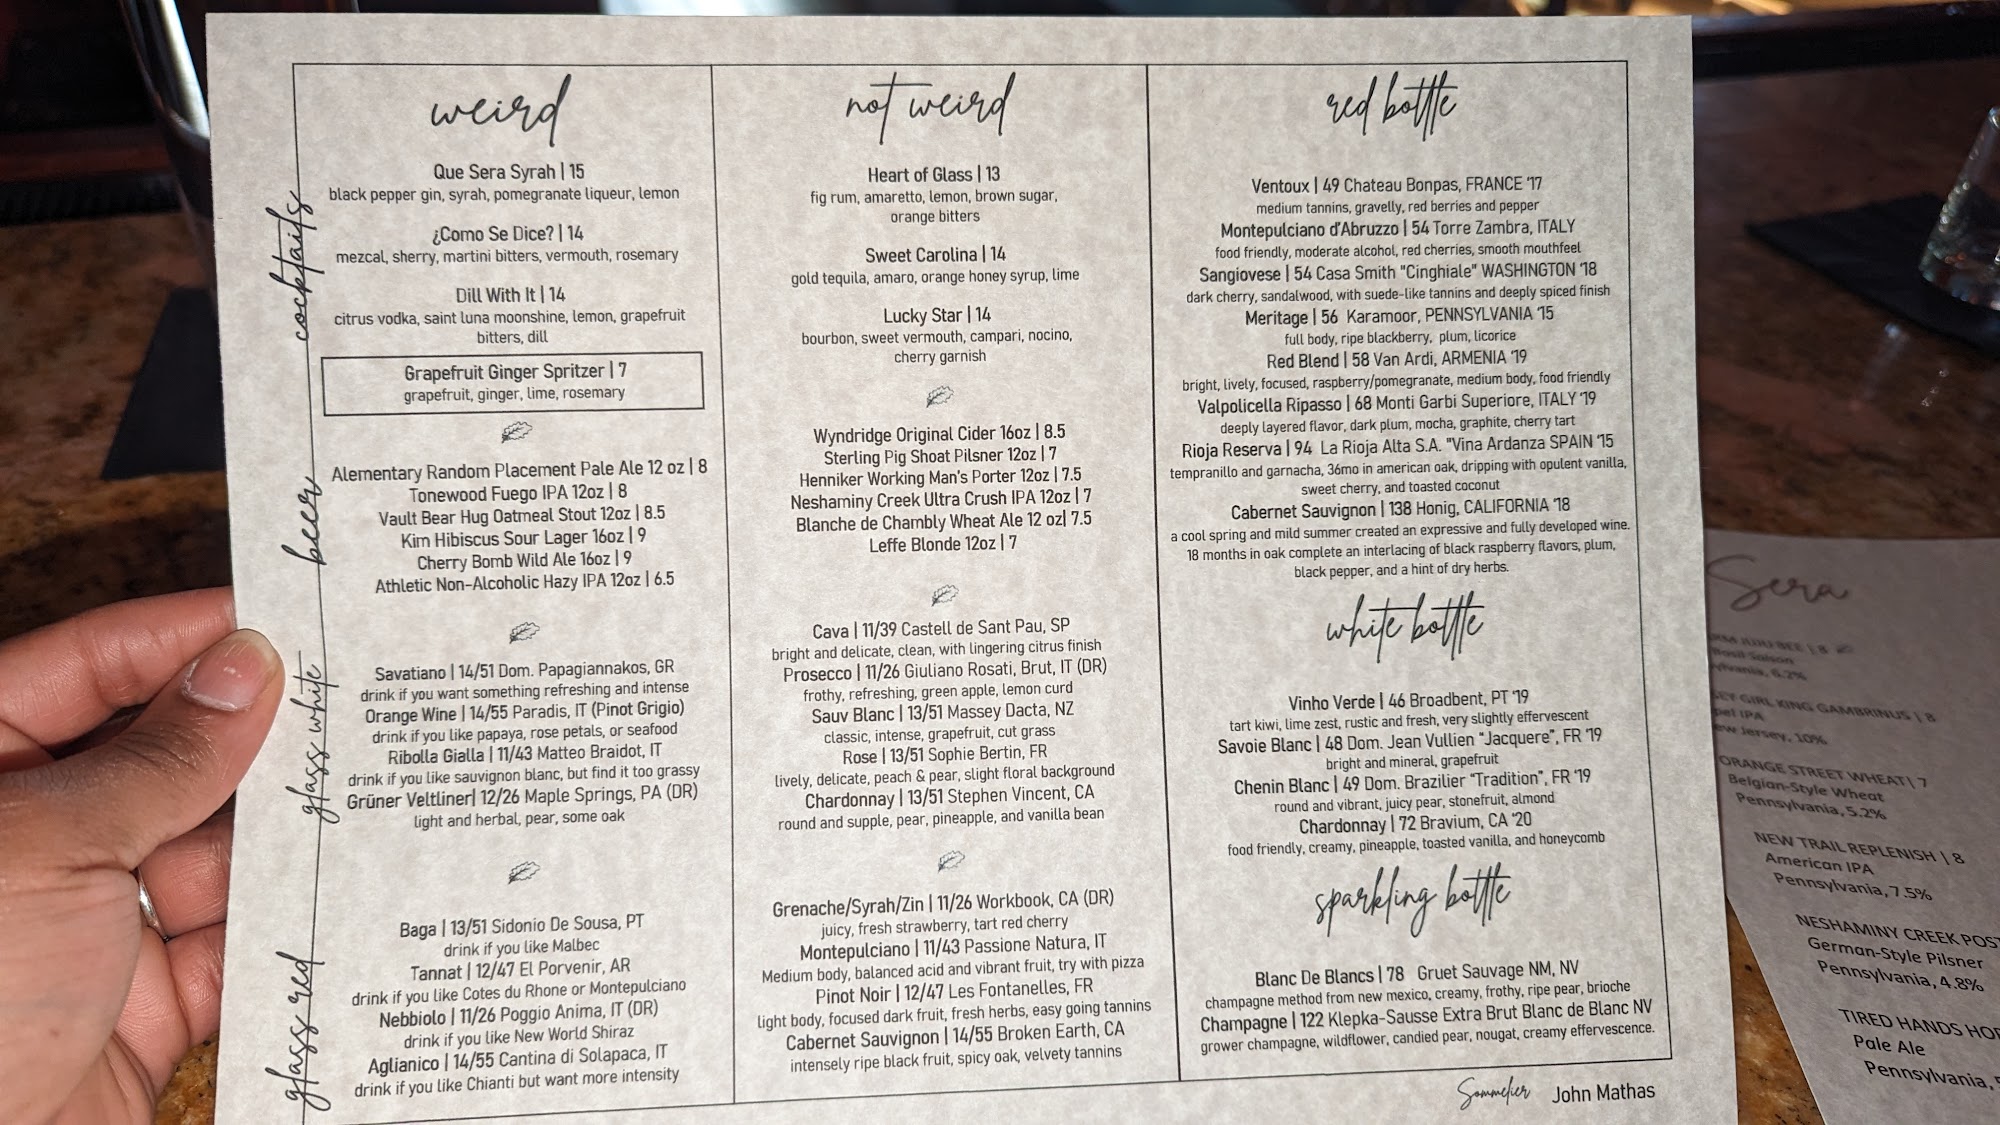 weird
cocktails
Que Sera Syrah | 15
black pepper gin, syrah, pomegranate liqueur, lemon
¿Como Se Dice? | 14
mezcal, sherry, martini bitters, vermouth, rosemary
Dill With It | 14
citrus vodka, saint luna moonshine, lemon, grapefruit
bitters, dill
Grapefruit Ginger Spritzer | 7
grapefruit, ginger, lime, rosemary
beer
Alementary Random Placement Pale Ale 12 oz | 8
Tonewood Fuego IPA 12oz | 8
Vault Bear Hug Oatmeal Stout 12oz | 8.5
Kim Hibiscus Sour Lager 16oz | 9
Cherry Bomb Wild Ale 16oz | 9
Athletic Non-Alcoholic Hazy IPA 12oz | 6.5
glass white
Savatiano | 14/51 Dom. Papagiannakos, GR
drink if you want something refreshing and intense
Orange Wine | 14/55 Paradis, IT (Pinot Grigio)
drink if you like papaya, rose petals, or seafood
Ribolla Gialla | 11/43 Matteo Braidot, IT
drink if you like sauvignon blanc, but find it too grassy
Grüner Veltliner| 12/26 Maple Springs, PA (DR)
light and herbal, pear, some oak
glass red
Baga | 13/51 Sidonio De Sousa, PT
drink if you like Malbec
Tannat | 12/47 El Porvenir, AR
drink if you like Cotes du Rhone or Montepulciano
Nebbiolo | 11/26 Poggio Anima, IT (DR)
drink if you like New World Shiraz
Aglianico | 14/55 Cantina di Solapaca, IT
drink if you like Chianti but want more intensity
not weird
Heart of Glass | 13
fig rum, amaretto, lemon, brown sugar,
orange bitters
Sweet Carolina | 14
gold tequila, amaro, orange honey syrup, lime
Lucky Star | 14
bourbon, sweet vermouth, campari, nocino,
cherry garnish
Wyndridge Original Cider 16oz | 8.5
Sterling Pig Shoat Pilsner 12oz | 7
Henniker Working Man's Porter 12oz | 7.5
Neshaminy Creek Ultra Crush IPA 12oz | 7
Blanche de Chambly Wheat Ale 12 oz| 7.5
Leffe Blonde 12oz | 7
Cava | 11/39 Castell de Sant Pau, SP
bright and delicate, clean, with lingering citrus finish
Prosecco | 11/26 Giuliano Rosati, Brut, IT (DR)
frothy, refreshing, green apple, lemon curd
Sauv Blanc | 13/51 Massey Dacta, NZ
classic, intense, grapefruit, cut grass
Rose | 13/51 Sophie Bertin, FR
lively, delicate, peach & pear, slight floral background
Chardonnay | 13/51 Stephen Vincent, CA
round and supple, pear, pineapple, and vanilla bean
Grenache/Syrah/Zin | 11/26 Workbook, CA (DR)
juicy, fresh strawberry, tart red cherry
Montepulciano | 11/43 Passione Natura, IT
Medium body, balanced acid and vibrant fruit, try with pizza
Pinot Noir | 12/47 Les Fontanelles, FR
light body, focused dark fruit, fresh herbs, easy going tannins
Cabernet Sauvignon | 14/55 Broken Earth, CA
intensely ripe black fruit, spicy oak, velvety tannins
red bottle
Ventoux | 49 Chateau Bonpas, FRANCE '17
medium tannins, gravelly, red berries and pepper
Montepulciano d'Abruzzo | 54 Torre Zambra, ITALY
food friendly, moderate alcohol, red cherries, smooth mouthfeel
Sangiovese | 54 Casa Smith "Cinghiale" WASHINGTON '18
dark cherry, sandalwood, with suede-like tannins and deeply spiced finish
Meritage | 56 Karamoor, PENNSYLVANIA '15
full body, ripe blackberry, plum, licorice
Red Blend | 58 Van Ardi, ARMENIA '19
bright, lively, focused, raspberry/pomegranate, medium body, food friendly
Valpolicella Ripasso | 68 Monti Garbi Superiore, ITALY '19
deeply layered flavor, dark plum, mocha, graphite, cherry tart
Rioja Reserva | 94 La Rioja Alta S.A. "Vina Ardanza SPAIN '15
tempranillo and garnacha, 36mo in american oak, dripping with opulent vanilla,
sweet cherry, and toasted coconut
Cabernet Sauvignon | 138 Honig, CALIFORNIA '18
a cool spring and mild summer created an expressive and fully developed wine.
18 months in oak complete an interlacing of black raspberry flavors, plum,
black pepper, and a hint of dry herbs.
white bottle
Vinho Verde | 46 Broadbent, PT '19
tart kiwi, lime zest, rustic and fresh, very slightly effervescent
Savoie Blanc | 48 Dom. Jean Vullien "Jacquere", FR '19
bright and mineral, grapefruit
Chenin Blanc | 49 Dom. Brazilier "Tradition", FR '19
round and vibrant, juicy pear, stonefruit, almond
Chardonnay | 72 Bravium, CA '20
food friendly, creamy, pineapple, toasted vanilla, and honeycomb
sparkling bottle
Blanc De Blancs | 78 Gruet Sauvage NM, NV
champagne method from new mexico, creamy, frothy, ripe pear, brioche
Champagne | 122 Klepka-Sausse Extra Brut Blanc de Blanc NV
grower champagne, wildflower, candied pear, nougat, creamy effervescence.
Sommelier John Mathas
Sera
BEE | 8
Basil Saison
6.2%
GIRL KING GAMBRINUS | 8
IPA
Jersey, 10%
ORANGE STREET WHEAT| 7
Belgian-Style Wheat
Pennsylvania, 5.2%
NEW TRAIL REPLENISH | 8
American IPA
Pennsylvania, 7.5%
NESHAMINY CREEK POST
German-Style Pilsner
Pennsylvania, 4.8%
TIRED HANDS HOP
Pale Ale
Pennsylvania,